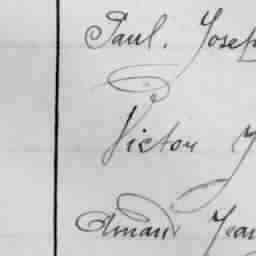 Paul. Josep
Victor J
Amand Jean